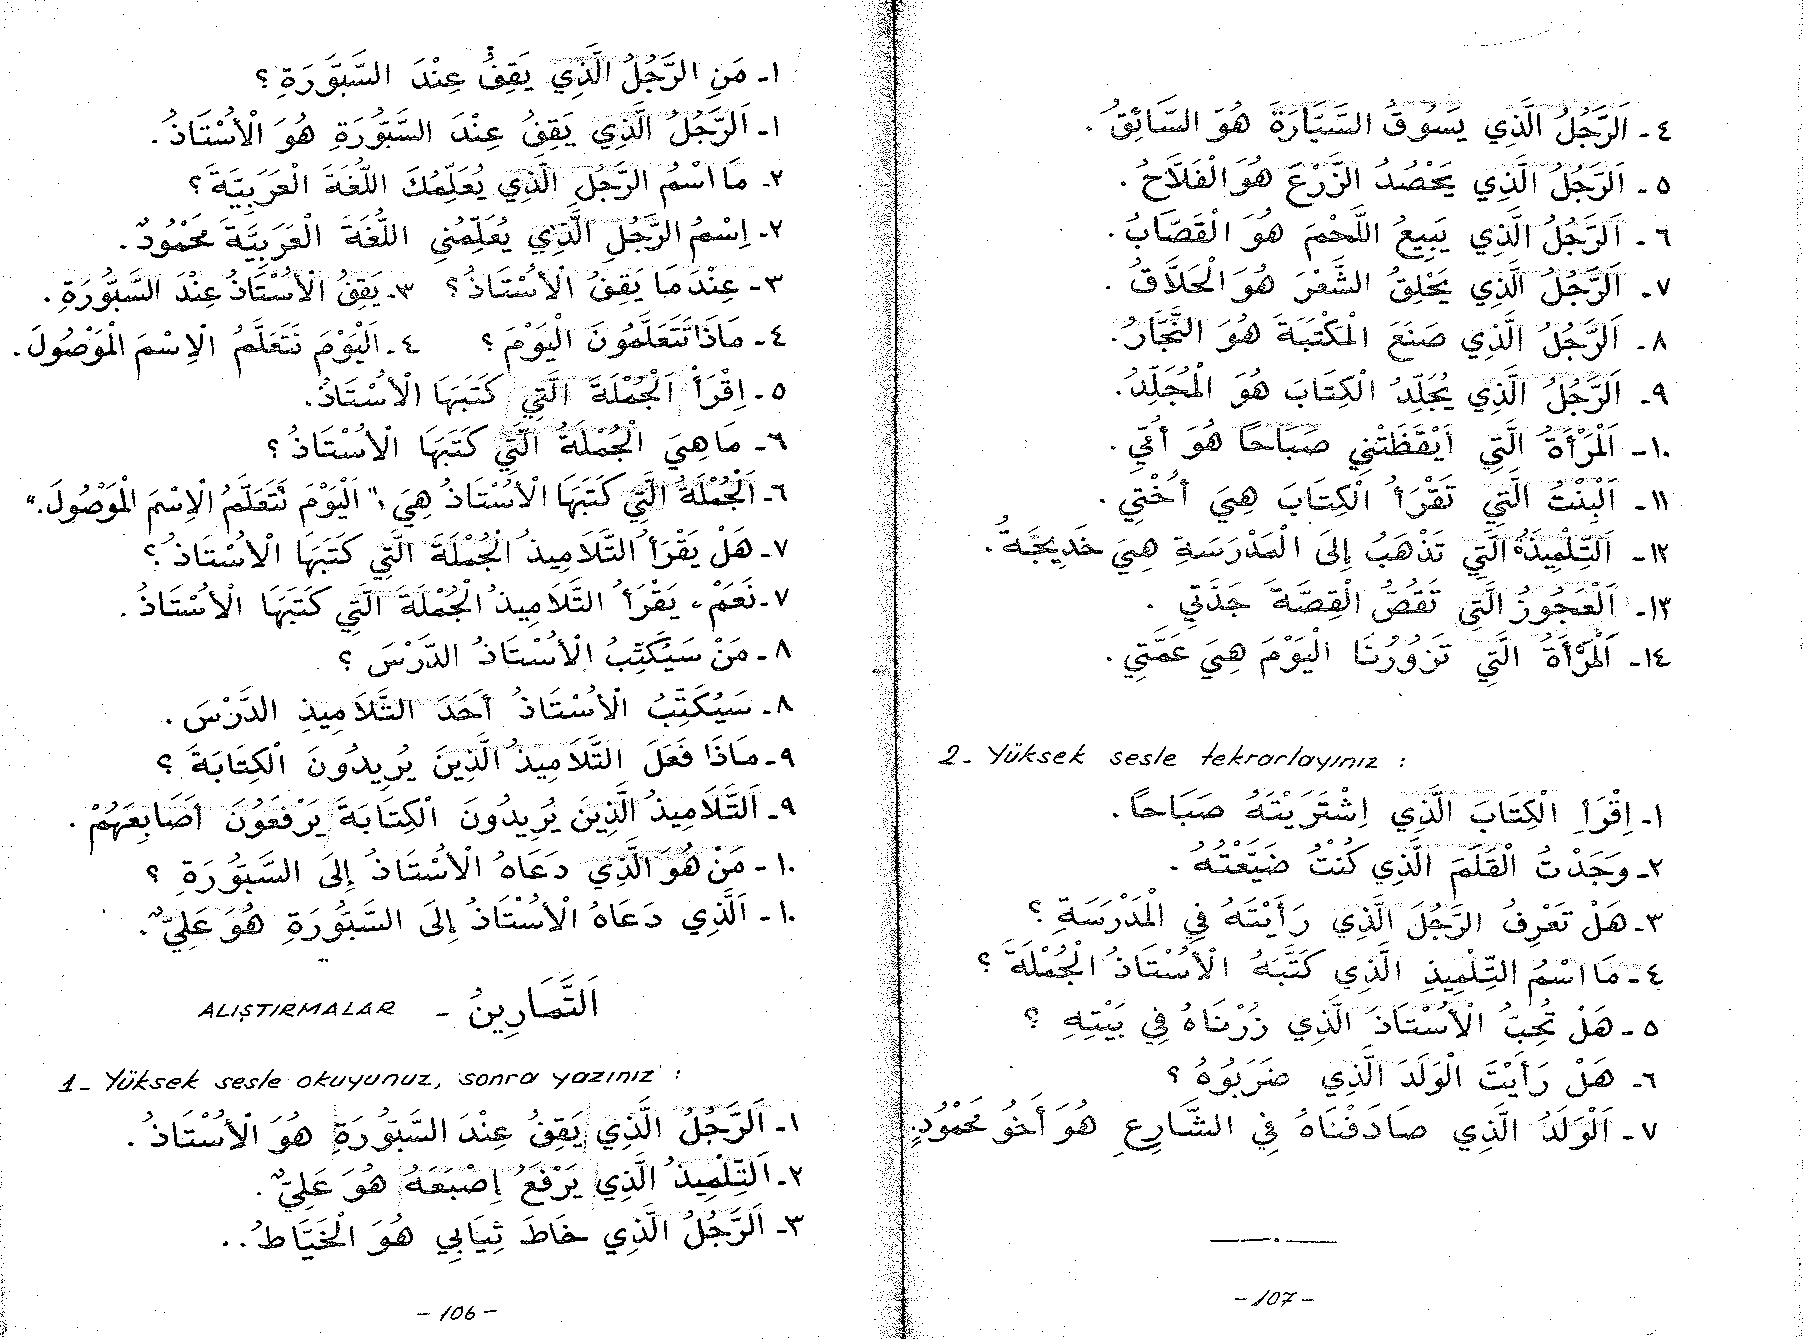 ١- مَنِ الرَّجُلُ الَّذِي يَقِفُ عِنْدَ السَّبُّورَةِ ؟
١- اَلرَّجُلُ الَّذِي يَقِفُ عِنْدَ السَّبُّورَةِ هُوَ الْأُسْتَاذُ .
٢- مَا اسْمُ الرَّجُلِ الَّذِي يُعَلِّمُكَ اللُّغَةَ الْعَرَبِيَّةَ ؟
٢- اِسْمُ الرَّجُلِ الَّذِي يُعَلِّمُنِي اللُّغَةَ الْعَرَبِيَّةَ مَحْمُودٌ .
٣- عِنْدَ مَا يَقِفُ الْأُسْتَاذُ ؟ ٣- يَقِفُ الْأُسْتَاذُ عِنْدَ السَّبُّورَةِ .
٤- مَاذَا تَتَعَلَّمُونَ الْيَوْمَ ؟ ٤- اَلْيَوْمَ نَتَعَلَّمُ الْاِسْمَ الْمَوْصُولَ .
٥- اِقْرَأْ اَلْجُمْلَةَ الَّتِي كَتَبَهَا الْأُسْتَاذُ .
٦- مَا هِيَ الْجُمْلَةُ الَّتِي كَتَبَهَا الْأُسْتَاذُ ؟
٦- اَلْجُمْلَةُ الَّتِي كَتَبَهَا الْأُسْتَاذُ هِيَ : " اَلْيَوْمَ نَتَعَلَّمُ الْاِسْمَ الْمَوْصُولَ . "
٧- هَلْ يَقْرَأُ التَّلَامِيذُ الْجُمْلَةَ الَّتِي كَتَبَهَا الْأُسْتَاذُ ؟
٧- نَعَمْ ، يَقْرَأُ التَّلَامِيذُ الْجُمْلَةَ الَّتِي كَتَبَهَا الْأُسْتَاذُ .
٨- مَنْ سَيُكَتِّبُ الْأُسْتَاذُ الدَّرْسَ ؟
٨- سَيُكَتِّبُ الْأُسْتَاذُ أَحَدَ التَّلَامِيذِ الدَّرْسَ .
٩- مَاذَا فَعَلَ التَّلَامِيذُ الَّذِينَ يُرِيدُونَ الْكِتَابَةَ ؟
٩- اَلتَّلَامِيذُ الَّذِينَ يُرِيدُونَ الْكِتَابَةَ يَرْفَعُونَ أَصَابِعَهُمْ .
١٠- مَنْ هُوَ الَّذِي دَعَاهُ الْأُسْتَاذُ إِلَى السَّبُّورَةِ ؟
١٠- اَلَّذِي دَعَاهُ الْأُسْتَاذُ إِلَى السَّبُّورَةِ هُوَ عَلِيٌّ .
اَلتَّمَارِينُ - ALIŞTIRMALAR
1- Yüksek sesle okuyunuz, sonra yazınız :
١- اَلرَّجُلُ الَّذِي يَقِفُ عِنْدَ السَّبُّورَةِ هُوَ الْأُسْتَاذُ .
٢- اَلتِّلْمِيذُ الَّذِي يَرْفَعُ اِصْبَعَهُ هُوَ عَلِيٌّ .
٣- اَلرَّجُلُ الَّذِي خَاطَ ثِيَابِي هُوَ الْخَيَّاطُ . .
- 106 -
٤- اَلرَّجُلُ الَّذِي يَسُوقُ السَّيَّارَةَ هُوَ السَّائِقُ .
٥- اَلرَّجُلُ الَّذِي يَحْصُدُ الزَّرْعَ هُوَ الْفَلَّاحُ .
٦- اَلرَّجُلُ الَّذِي يَبِيعُ اللَّحْمَ هُوَ الْقَصَّابُ .
٧- اَلرَّجُلُ الَّذِي يَحْلِقُ الشَّعْرَ هُوَ الْحَلَّاقُ .
٨- اَلرَّجُلُ الَّذِي صَنَعَ الْمَكْتَبَةَ هُوَ النَّجَّارُ .
٩- اَلرَّجُلُ الَّذِي يُجَلِّدُ الْكِتَابَ هُوَ الْمُجَلِّدُ .
١٠- اَلْمَرْأَةُ الَّتِي اَيْقَظَتْنِي صَبَاحًا هُوَ أُمِّي .
١١- اَلْبِنْتُ الَّتِي تَقْرَأُ الْكِتَابَ هِيَ أُخْتِي .
١٢- اَلتِّلْمِيذَةُ الَّتِي تَذْهَبُ إِلَى الْمَدْرَسَةِ هِيَ خَدِيجَةُ .
١٣- اَلْعَجُوزُ الَّتِي تَقُصُّ الْقِصَّةَ جَدَّتِي .
١٤- اَلْمَرْأَةُ الَّتِي تَزُورُنَا الْيَوْمَ هِيَ عَمَّتِي .
2- Yüksek sesle tekrarlayınız :
١- اِقْرَأِ الْكِتَابَ الَّذِي اِشْتَرَيْتَهُ صَبَاحًا .
٢- وَجَدْتُ الْقَلَمَ الَّذِي كُنْتُ ضَيَّعْتُهُ .
٣- هَلْ تَعْرِفُ الرَّجُلَ الَّذِي رَأَيْتَهُ فِي الْمَدْرَسَةِ ؟
٤- مَا اسْمُ التِّلْمِيذِ الَّذِي كَتَّبَهُ الْأُسْتَاذُ الْجُمْلَةَ ؟
٥- هَلْ تُحِبُّ الْأُسْتَاذَ الَّذِي زُرْنَاهُ فِي بَيْتِهِ ؟
٦- هَلْ رَأَيْتَ الْوَلَدَ الَّذِي ضَرَبُوهُ ؟
٧- اَلْوَلَدُ الَّذِي صَادَفْنَاهُ فِي الشَّارِعِ هُوَ أَخُو مَحْمُودٍ .
- 107 -